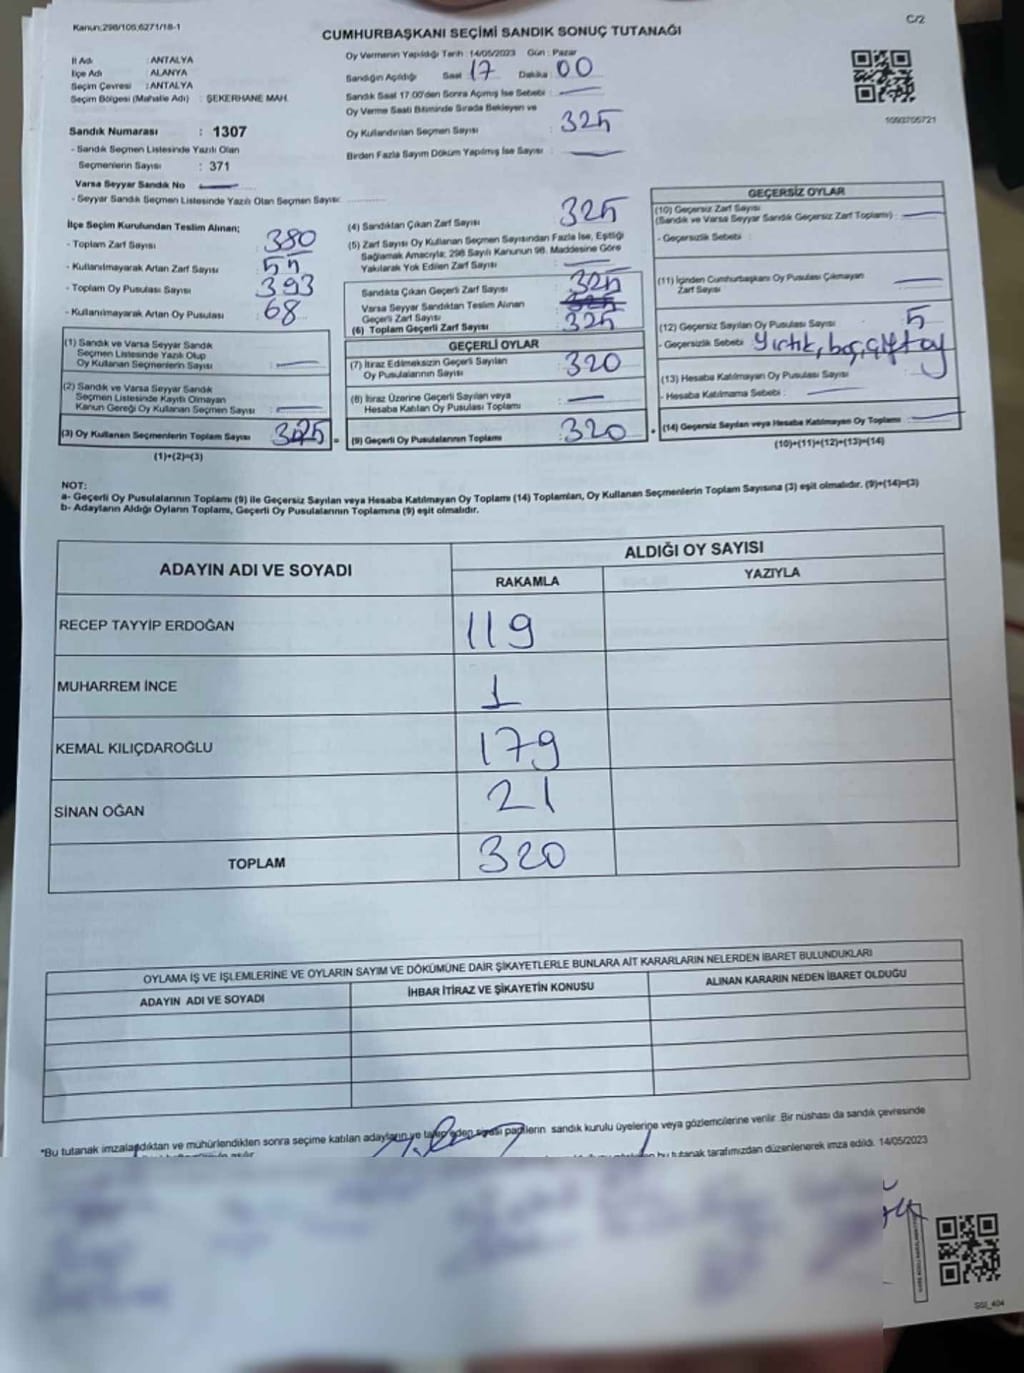 Kanun:298/105;6271/18-1
C/2
CUMHURBAŞKANI SEÇİMİ SANDIK SONUÇ TUTANAĞI
İl Adı : ANTALYA
İlçe Adı : ALANYA
Seçim Çevresi : ANTALYA
Seçim Bölgesi (Mahalle Adı) : ŞEKERHANE MAH.
Sandık Numarası : 1307
- Sandık Seçmen Listesinde Yazılı Olan
Seçmenlerin Sayısı : 371
Varsa Seyyar Sandık No
- Seyyar Sandık Seçmen Listesinde Yazılı Olan Seçmen Sayısı:
Oy Vermenin Yapıldığı Tarih : 14/05/2023 Gün : Pazar
Sandığın Açıldığı Saat 17 Dakika : 00
Sandık Saat 17.00'den Sonra Açılmış İse Sebebi :
Oy Verme Saati Bitiminde Sırada Bekleyen ve
Oy Kullandırılan Seçmen Sayısı : 325
Birden Fazla Sayım Döküm Yapılmış İse Sayısı :
1093705721
İlçe Seçim Kurulundan Teslim Alınan;
- Toplam Zarf Sayısı : 380
- Kullanılmayarak Artan Zarf Sayısı : 55
- Toplam Oy Pusulası Sayısı : 393
- Kullanılmayarak Artan Oy Pusulası : 68
(1) Sandık ve Varsa Seyyar Sandık
Seçmen Listesinde Yazılı Olup
Oy Kullanan Seçmenlerin Sayısı :
(2) Sandık ve Varsa Seyyar Sandık
Seçmen Listesinde Kayıtlı Olmayan
Kanun Gereği Oy Kullanan Seçmen Sayısı :
(3) Oy Kullanan Seçmenlerin Toplam Sayısı : 325 =
(1)+(2)=(3)
(4) Sandıktan Çıkan Zarf Sayısı : 325
(5) Zarf Sayısı Oy Kullanan Seçmen Sayısından Fazla İse, Eşitliği
Sağlamak Amacıyla; 298 Sayılı Kanunun 98. Maddesine Göre
Yakılarak Yok Edilen Zarf Sayısı :
Sandıkta Çıkan Geçerli Zarf Sayısı : 325
Varsa Seyyar Sandıktan Teslim Alınan
Geçerli Zarf Sayısı :
(6) Toplam Geçerli Zarf Sayısı : 325
GEÇERLİ OYLAR
(7) İtiraz Edilmeksizin Geçerli Sayılan
Oy Pusulalarının Sayısı : 320
(8) İtiraz Üzerine Geçerli Sayılan veya
Hesaba Katılan Oy Pusulası Toplamı :
(9) Geçerli Oy Pusulalarının Toplamı : 320 +
GEÇERSİZ OYLAR
(10) Geçersiz Zarf Sayısı
(Sandık ve Varsa Seyyar Sandık Geçersiz Zarf Toplamı) :
- Geçersizlik Sebebi :
(11) İçinden Cumhurbaşkanı Oy Pusulası Çıkmayan
Zarf Sayısı :
(12) Geçersiz Sayılan Oy Pusulası Sayısı : 5
- Geçersizlik Sebebi : Yırtık, boş, çift oy
(13) Hesaba Katılmayan Oy Pusulası Sayısı :
- Hesaba Katılmama Sebebi :
(14) Geçersiz Sayılan veya Hesaba Katılmayan Oy Toplamı :
(10)+(11)+(12)+(13)=(14)
NOT:
a- Geçerli Oy Pusulalarının Toplamı (9) ile Geçersiz Sayılan veya Hesaba Katılmayan Oy Toplamı (14) Toplamları, Oy Kullanan Seçmenlerin Toplam Sayısına (3) eşit olmalıdır. (9)+(14)=(3)
b- Adayların Aldığı Oyların Toplamı, Geçerli Oy Pusulalarının Toplamına (9) eşit olmalıdır.
ADAYIN ADI VE SOYADI
ALDIĞI OY SAYISI
RAKAMLA YAZIYLA
RECEP TAYYİP ERDOĞAN 119
MUHARREM İNCE 1
KEMAL KILIÇDAROĞLU 179
SİNAN OĞAN 21
TOPLAM 320
OYLAMA İŞ VE İŞLEMLERİNE VE OYLARIN SAYIM VE DÖKÜMÜNE DAİR ŞİKAYETLERLE BUNLARA AİT KARARLARIN NELERDEN İBARET BULUNDUKLARI
ADAYIN ADI VE SOYADI İHBAR İTİRAZ VE ŞİKAYETİN KONUSU ALINAN KARARIN NEDEN İBARET OLDUĞU
*Bu tutanak imzalandıktan ve mühürlendikten sonra seçime katılan adayların ve talep eden siyasi partilerin sandık kurulu üyelerine veya gözlemcilerine verilir. Bir nüshası da sandık çevresinde
bu tutanak tarafımızdan düzenlenerek imza edildi. 14/05/2023
SGI_404